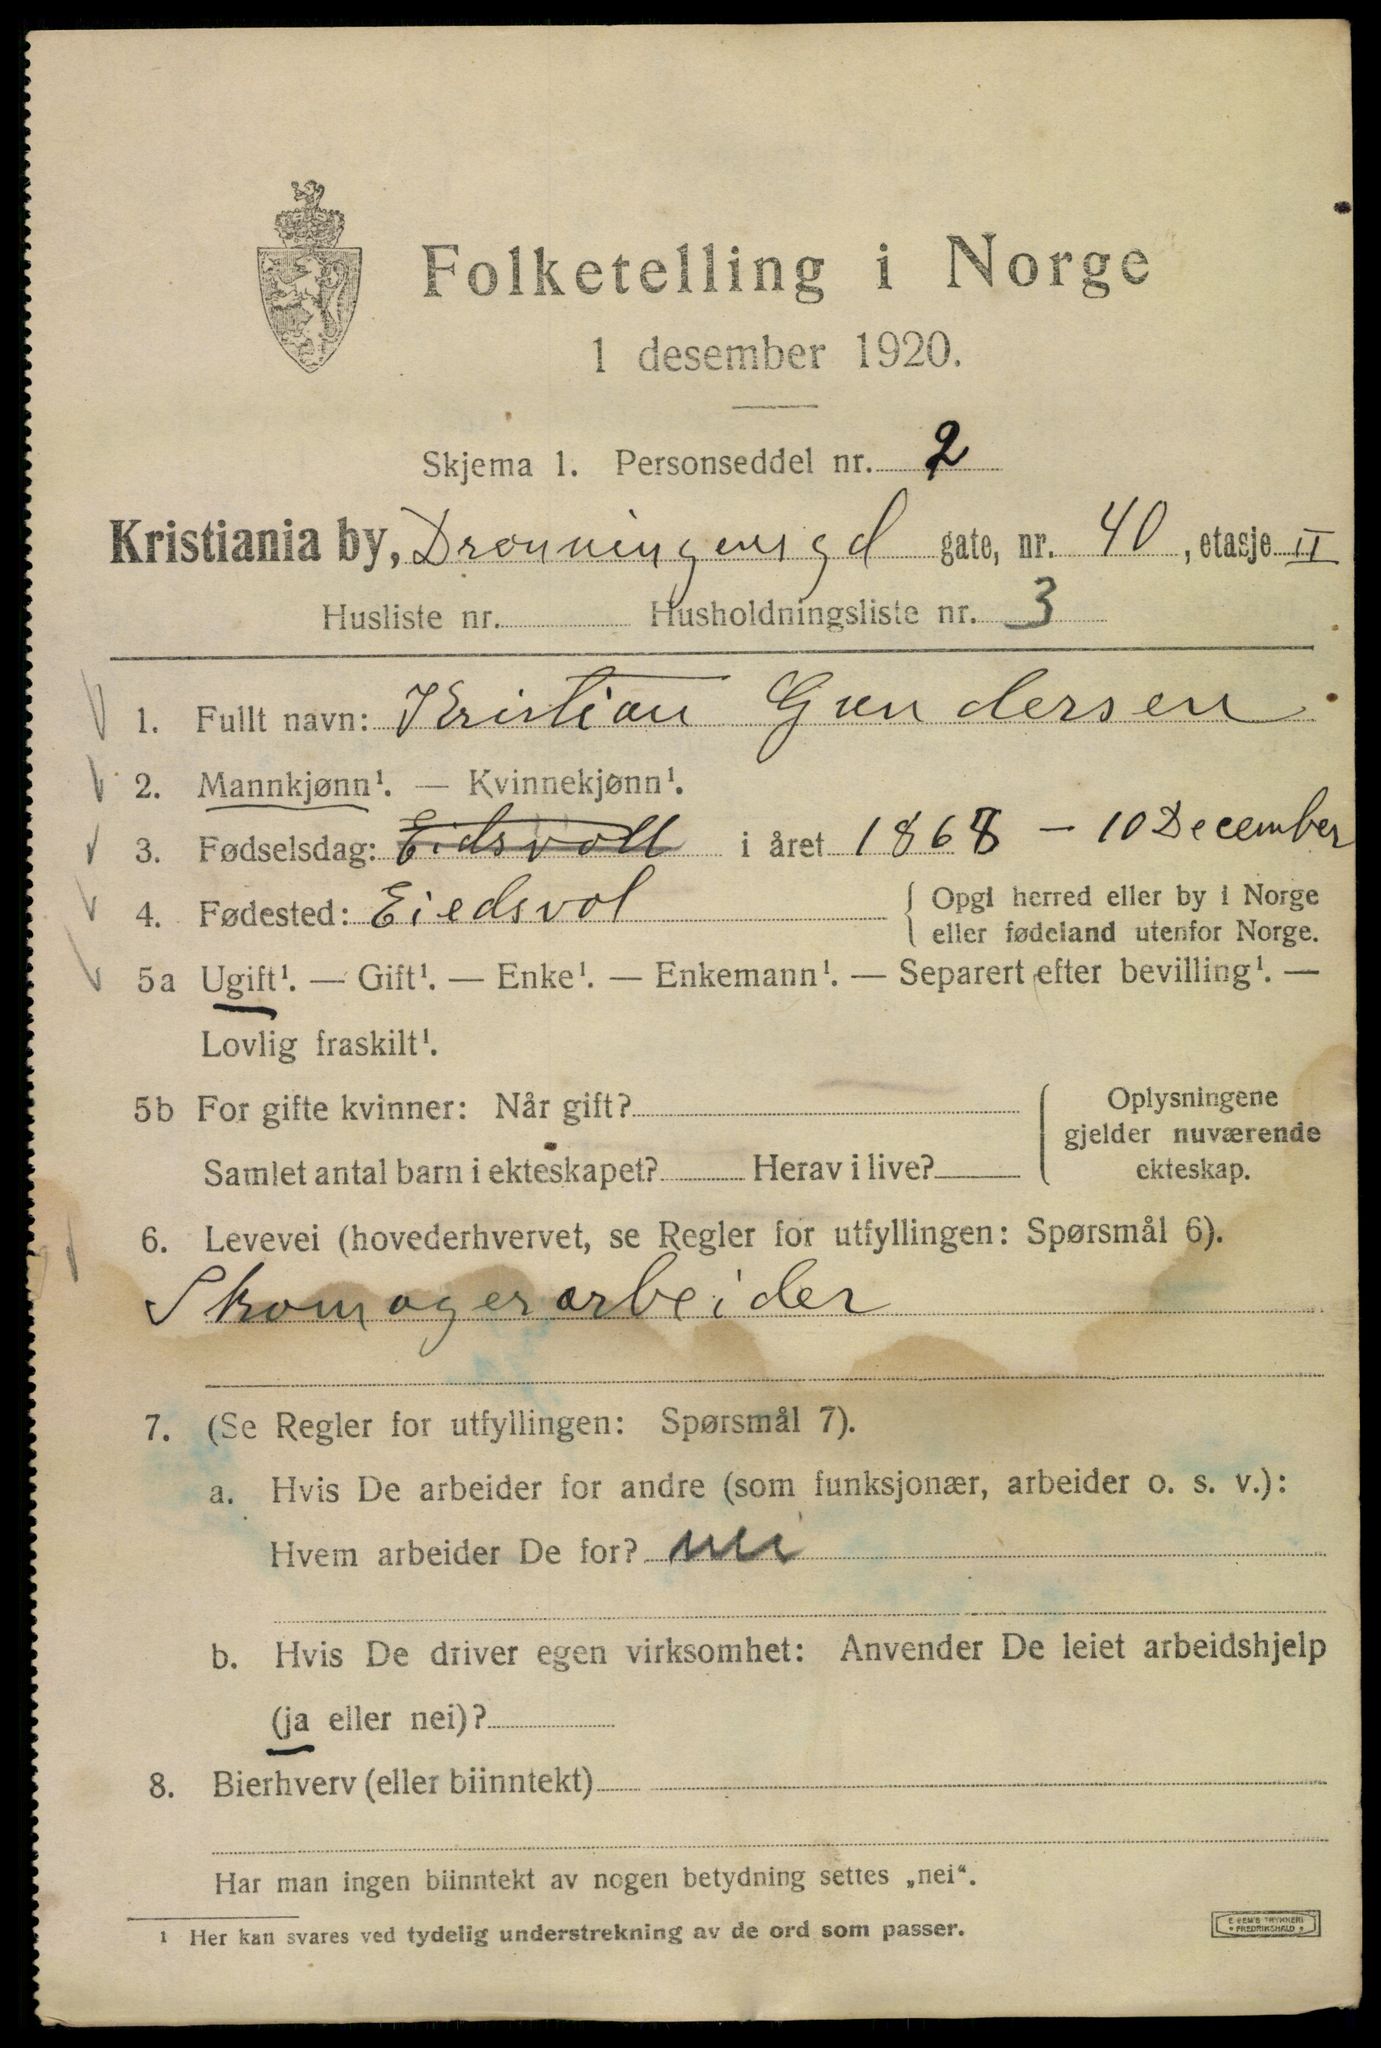 Folketelling i Norge
1 desember 1920.
Skjema 1. Personseddel nr. 2
Kristiania by, Dronningensgd gate, nr. 40, etasje II
Husliste nr. Husholdningsliste nr. 3
1. Fullt navn: Kristian Gundersen
2. Mannkjønn¹. — Kvinnekjønn¹.
3. Fødselsdag: Eidsvoll i året 1868 — 10 December
4. Fødested: Eiedsvol { Opgi herred eller by i Norge
eller fødeland utenfor Norge.
5a Ugift¹. — Gift¹. — Enke¹. — Enkemann¹. — Separert efter bevilling¹. —
Lovlig fraskilt¹.
5b For gifte kvinner: Når gift? { Oplysningene
gjelder nuværende
Samlet antal barn i ekteskapet? Herav i live? ekteskap.
6. Levevei (hovederhvervet, se Regler for utfyllingen: Spørsmål 6).
Skomagerarbeider
7. (Se Regler for utfyllingen: Spørsmål 7).
a. Hvis De arbeider for andre (som funksjonær, arbeider o. s. v.):
Hvem arbeider De for? nei
b. Hvis De driver egen virksomhet: Anvender De leiet arbeidshjelp
(ja eller nei)?
8. Bierhverv (eller biinntekt)
Har man ingen biinntekt av nogen betydning settes „nei“.
¹ Her kan svares ved tydelig understrekning av de ord som passer.
E SEM'S TRYKKERI
• FREDRIKSHALD •